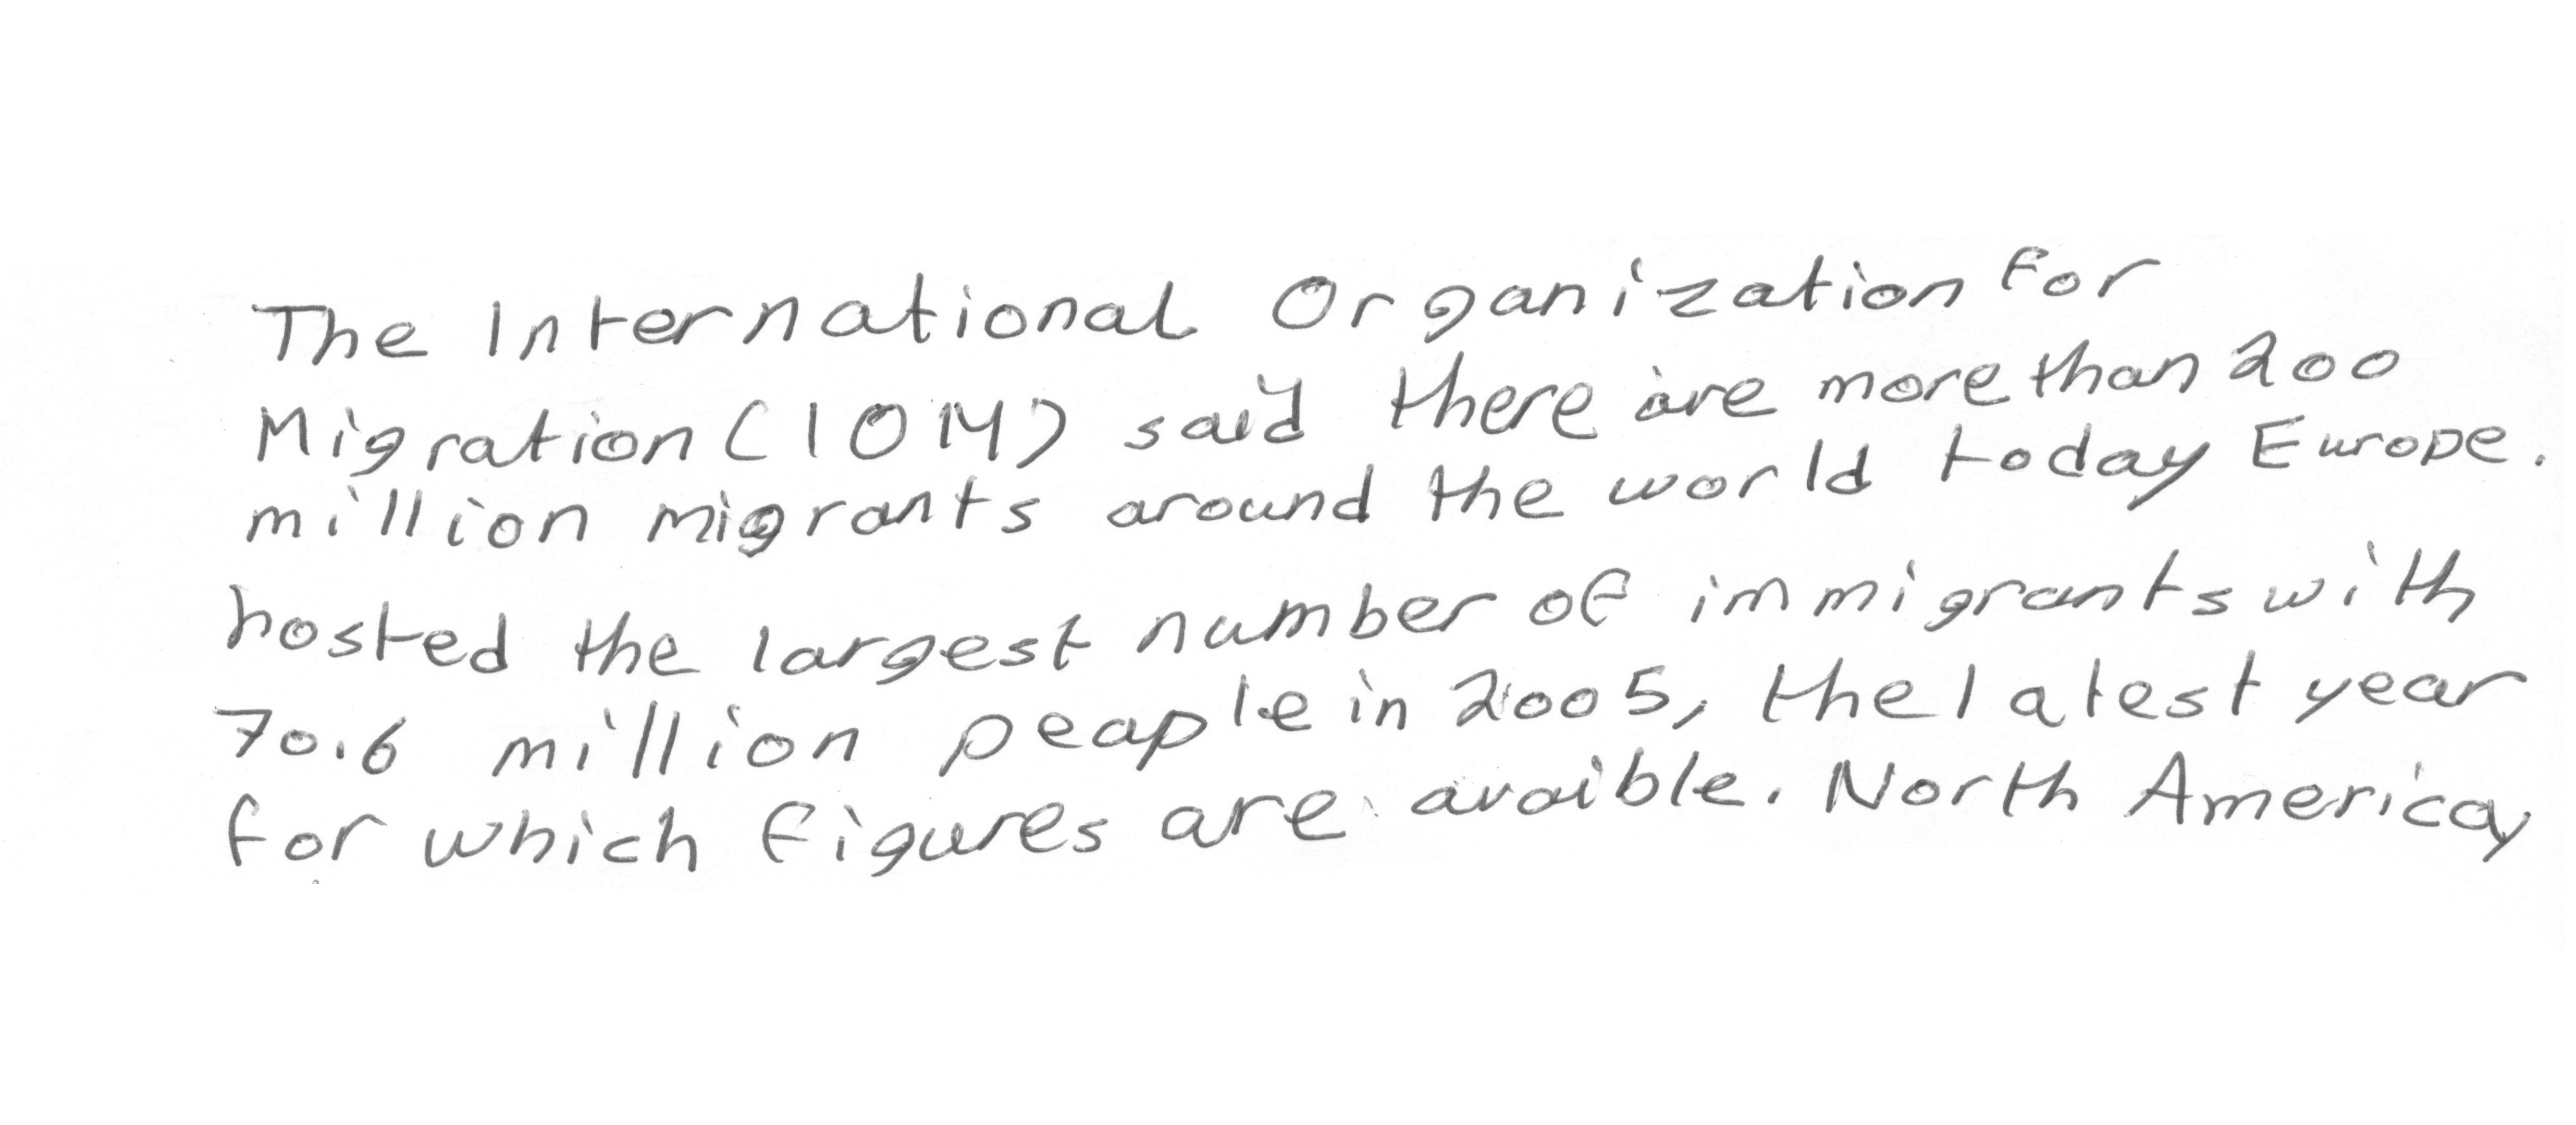 The International Organization for
Migration (IOM) said there are more than 200
million migrants around the world today Europe.
hosted the largest number of immigrants with
70.6 million peaple in 2005, the latest year
for which figures are avaible. North America,